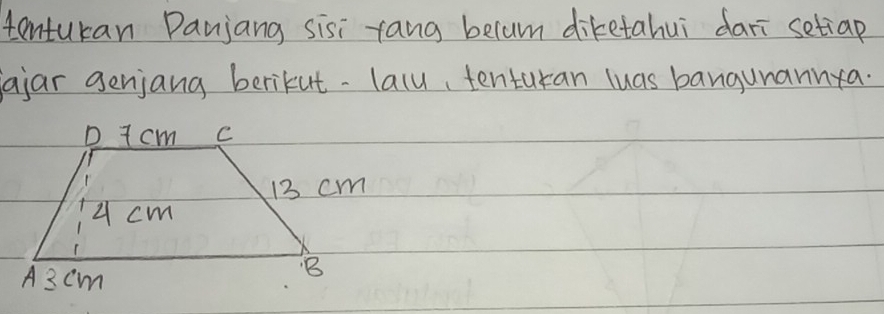 tentukan Panjang sisi yang belum diketahui dari setiap
jajar genjang berikut - lalu, tentukan luas bangunannya.
D 7 cm C
13 cm
4 cm
A 3 cm
B